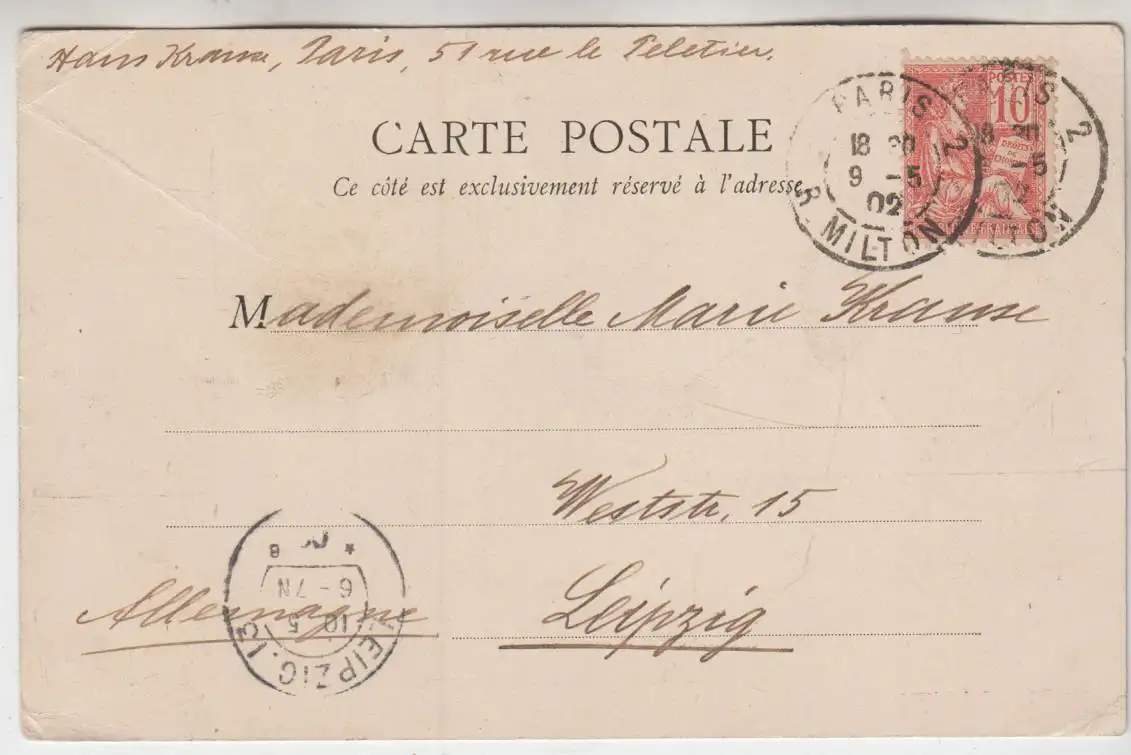 Hans Krause, Paris, 51 rue le Peletier.
CARTE POSTALE
Ce côté est exclusivement réservé à l'adresse
PARIS 2
18 30
9 -5
02
R. MILTON
PARIS 2
18 30
-5
POSTES
10
DROITS DE
FRANÇAISE
Mademoiselle Marie Krause
Weststr. 15
Leipzig
Allemagne
LEIPZIG. 13
10 5
6-7N
* 8